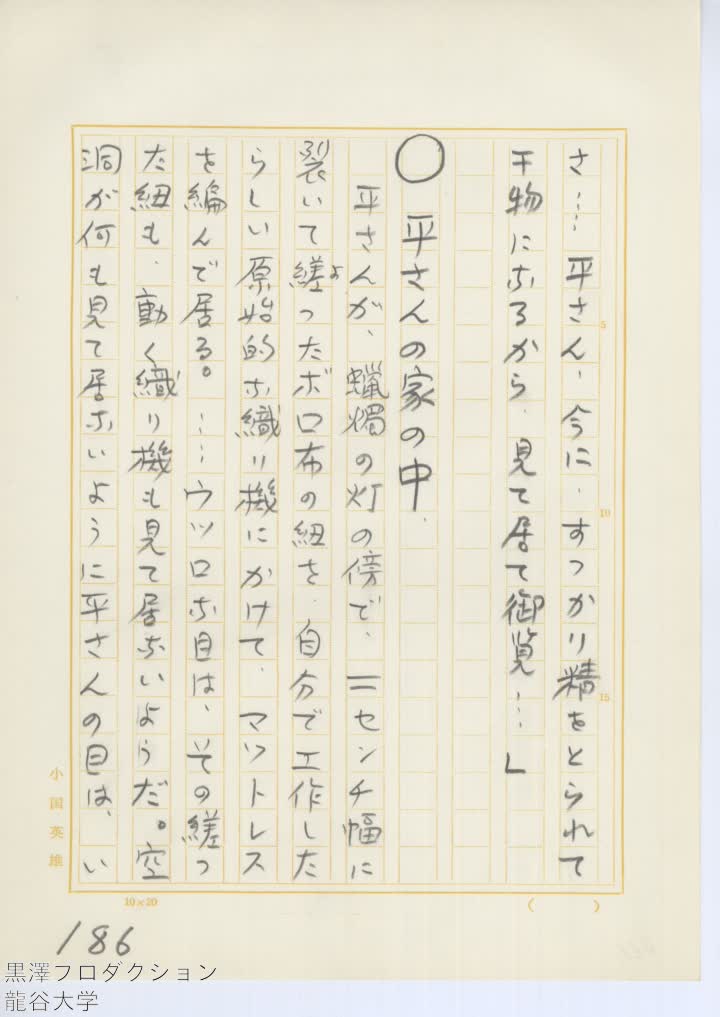 さ……平さん、今に、すつかり精をとられて
干物になるから、見て居て御覧……」
○　平さんの家の中
平さんが、蠟燭の灯の傍で、二センチ幅に
裂いて縒つたボロ布の紐を、自分で工作した
らしい原始的な織り機にかけて、マットレス
を編んで居る。……ウツロな目は、その縒つ
た紐も、動く織り機も見て居ないようだ。空
洞が何も見て居ないように平さんの目は、い
5
10
15
小国英雄
10×20
(　)
186
黒澤プロダクション
龍谷大学